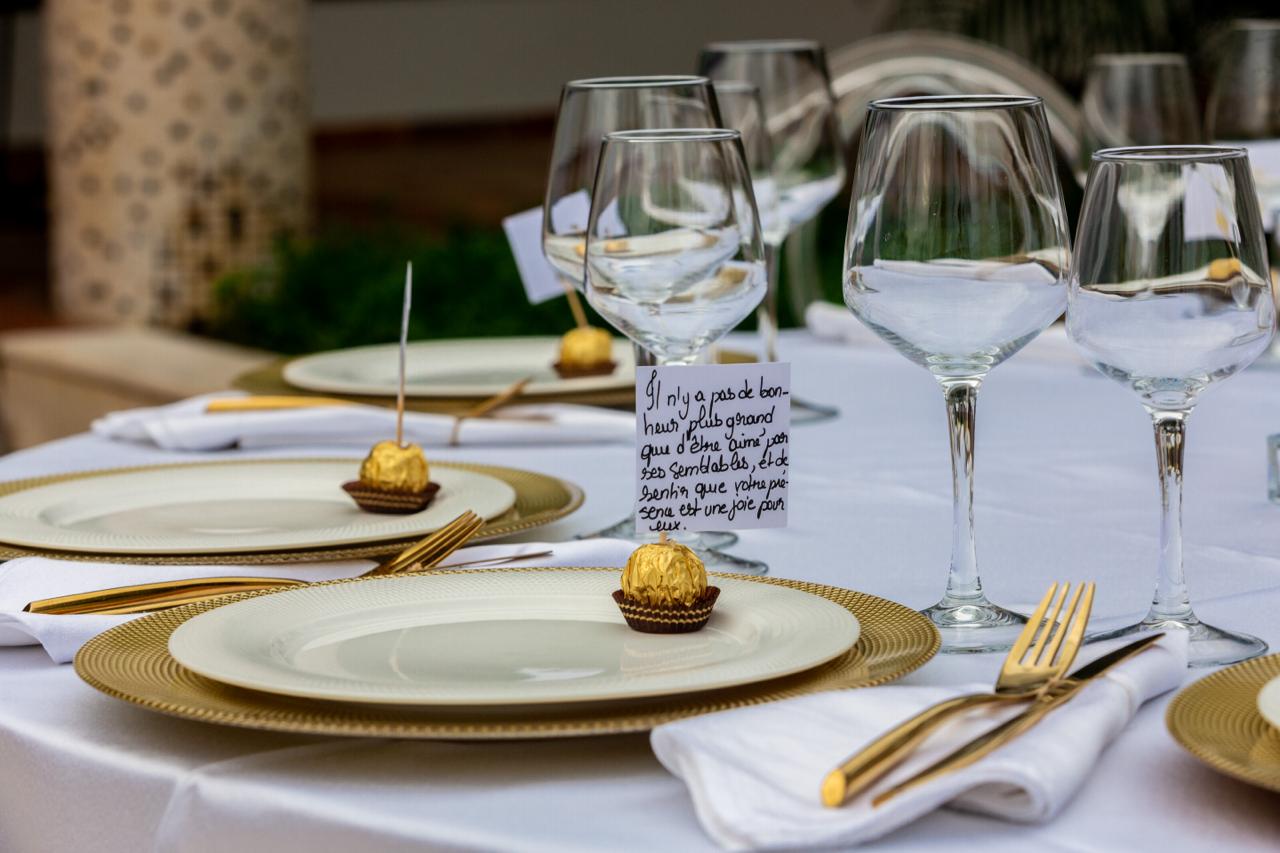 Il n'y a pas de bon-
heur plus grand
que d'être aimé par
ses semblables, et de
sentir que votre pré-
sence est une joie pour
eux.